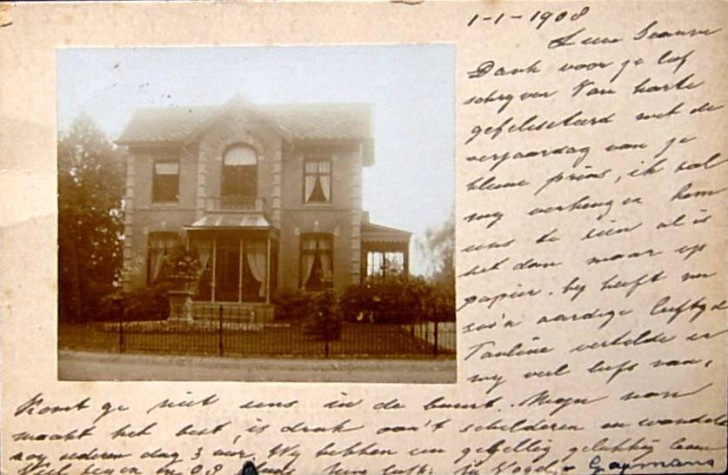 1-1-1908
Lieve
Dank voor je lief
schrijven Van harte
gefeliciteerd met de
verjaardag van je
kleine prins, ik zal
my verheugen hem
eens te zien al is
het dan maar op
papier. hy heeft nu
zoo'n aardige leeftyd
Pauline vertelde er
my veel liefs van,
Komt ge niet eens in de buurt. Mijn man
maakt het best, is druk aan't schilderen en wandelt
nog iederen dag 3 uur. Wy hebben een gezellig gelukkig